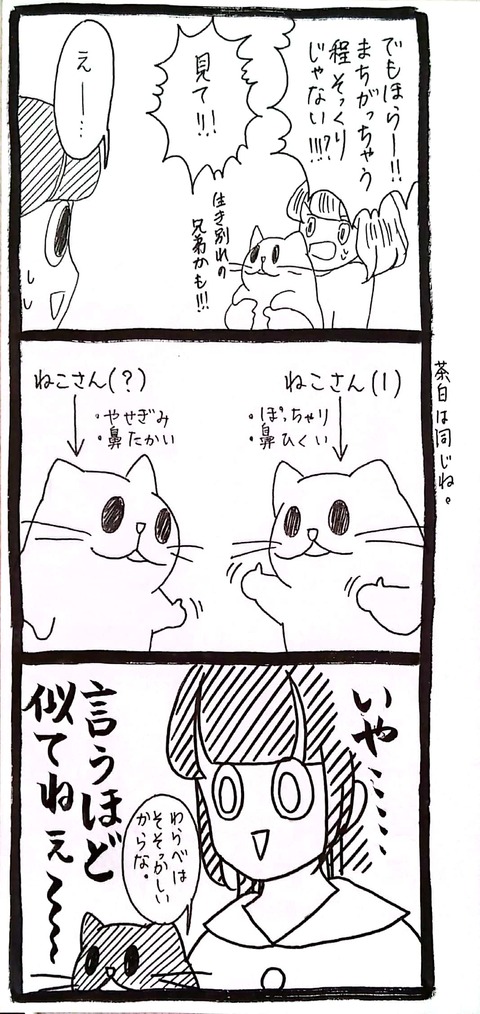 でもほらー!!
まちがっちゃう
程そっくり
じゃない!!!?
見て!!!
生き別れの
兄弟かも!!!
えー…
ねこさん(1)
・ぽっちゃり
・鼻ひくい
ねこさん(?)
・やせぎみ
・鼻たかい
茶白は同じね。
いや……
わらべは
そそっかしい
からな。
言うほど
似てねぇ〜〜